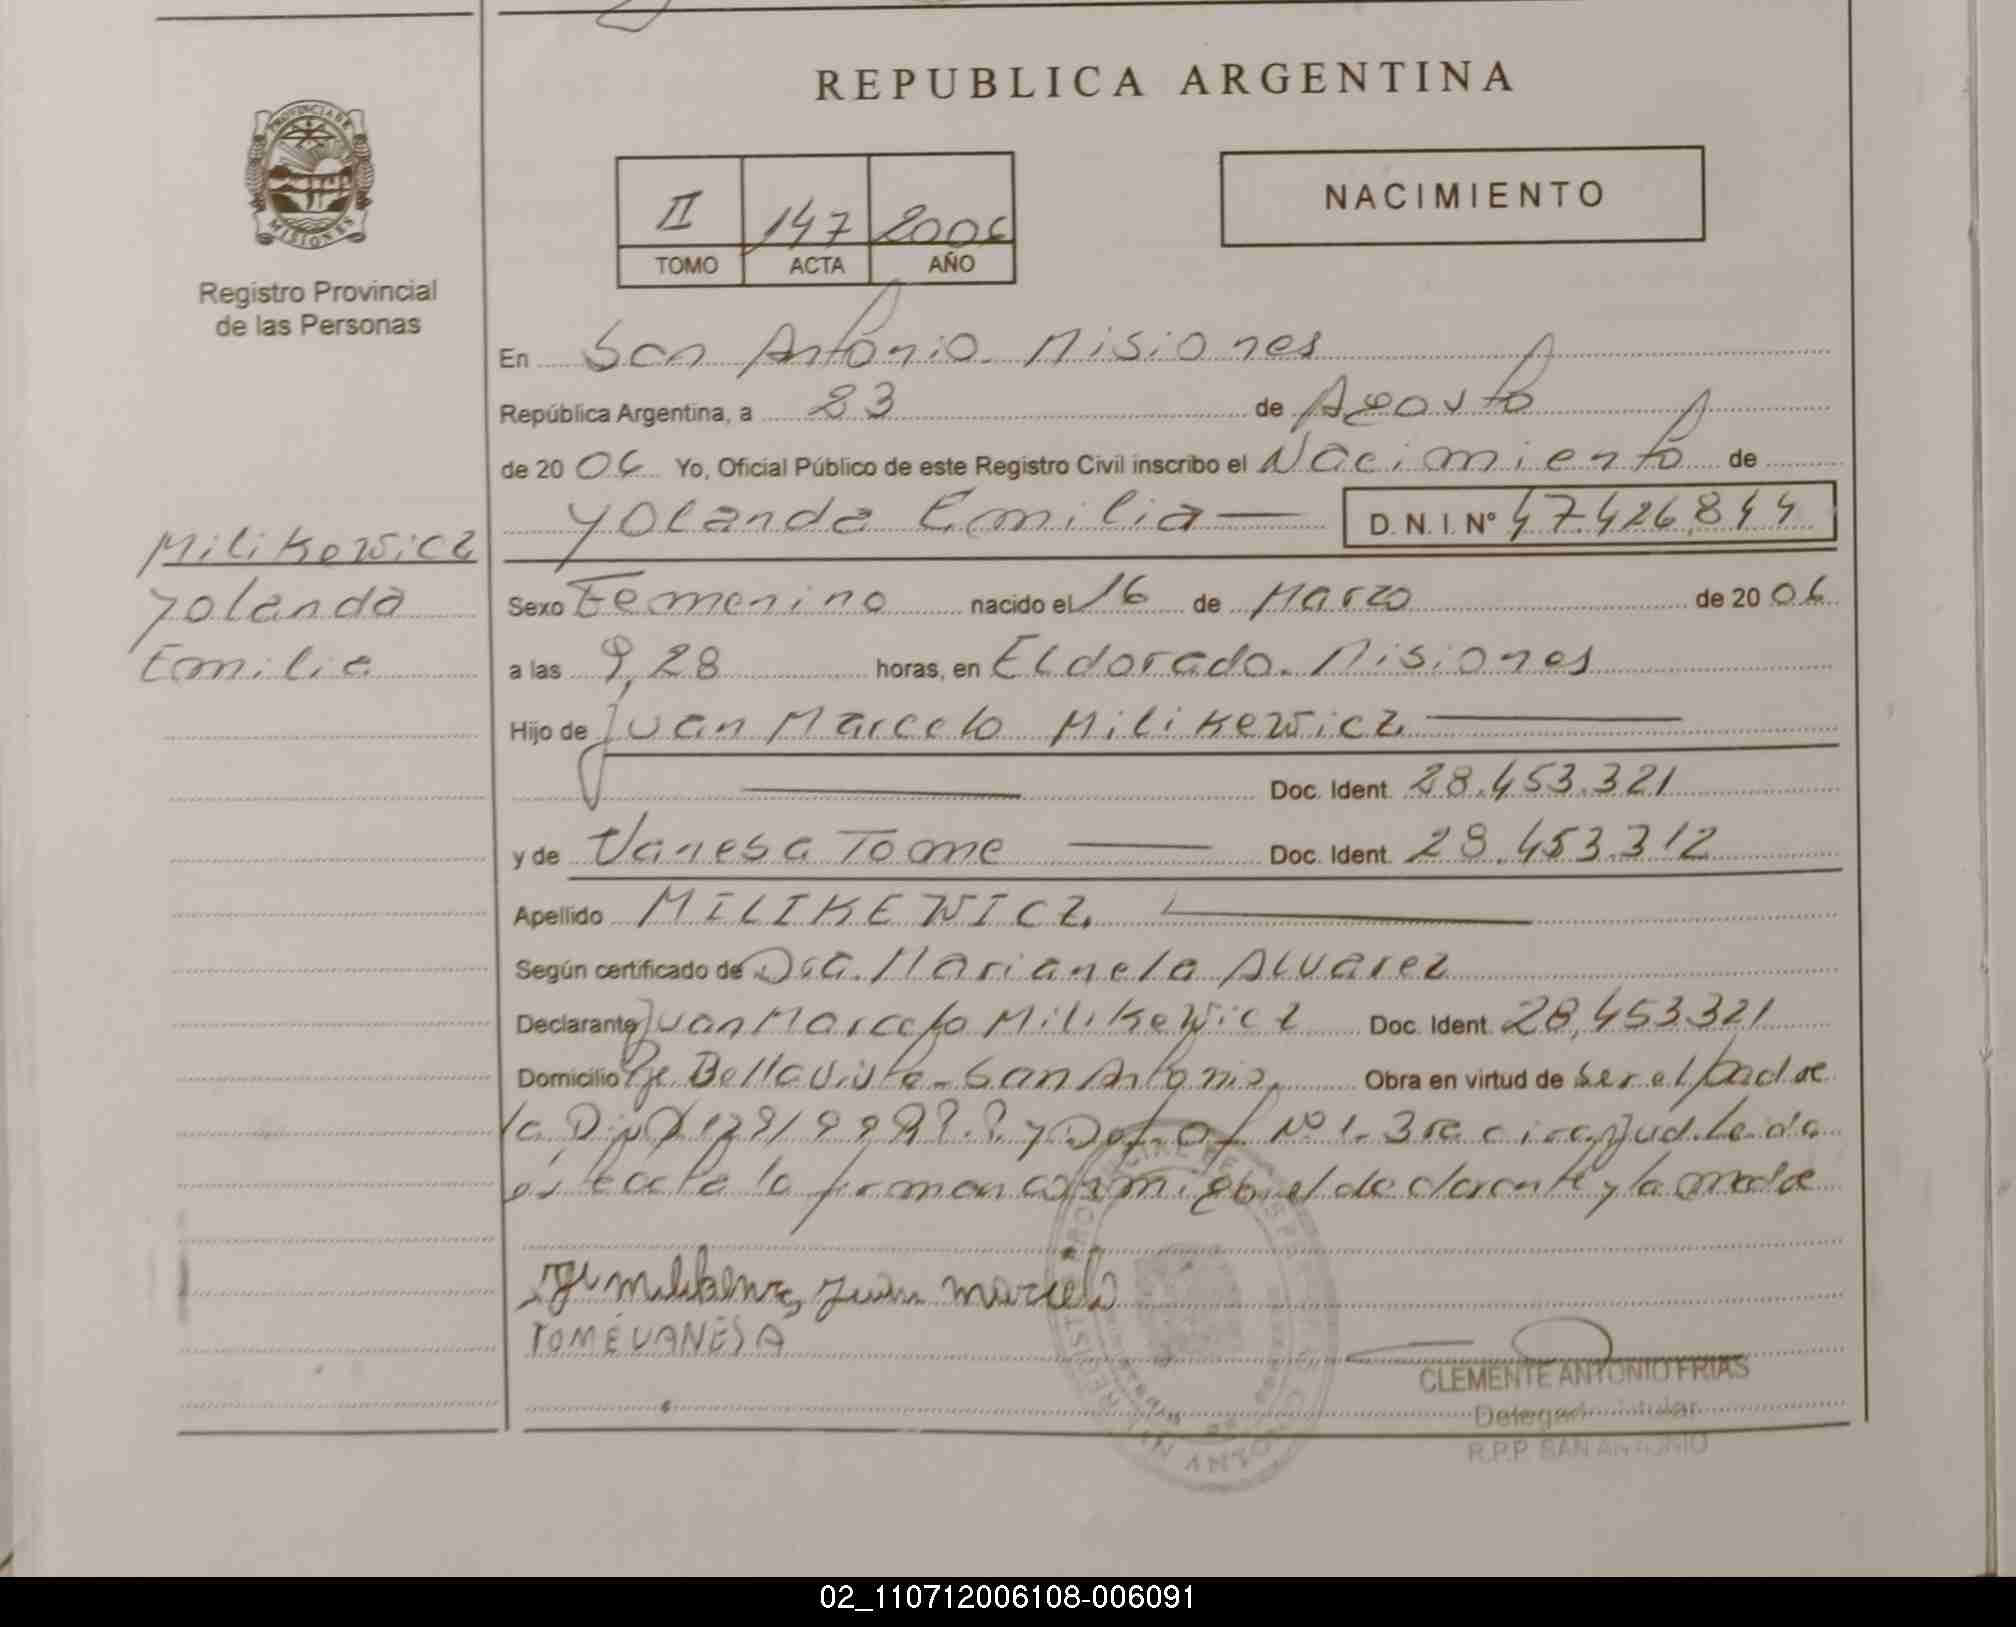 REPUBLICA ARGENTINA
PROVINCIA DE
MISIONES
Registro Provincial
de las Personas
II 147 2006
TOMO ACTA AÑO
NACIMIENTO
En San Antonio. Misiones
República Argentina, a 23 de Agosto
de 20 06 Yo, Oficial Público de este Registro Civil inscribo el Nacimiento de
Yolanda Emilia — D. N. I. Nº 47.426.844
Milikewicz
Yolanda
Emilia
Sexo Femenino nacido el 16 de Marzo de 20 06
a las 9,28 horas, en Eldorado. Misiones
Hijo de Juan Marcelo Milikewicz
Doc. Ident. 28.453.321
y de Vanesa Tome Doc. Ident. 28.453.312
Apellido MILIKEWICZ
Según certificado de Dra. Marianela Alvarez
Declarante Juan Marcelo Milikewicz Doc. Ident. 28,453321
Domicilio Pje Bella Vista - San Antonio. Obra en virtud de ser el padre
Nº 1. 3ra circ. jud. Leida
esta acta la firman el declarante y la madre
Juan Marcelo
TOMÉ VANESA
CLEMENTE ANTONIO FRIAS
Delegado Titular
R.P.P. SAN ANTONIO
02_110712006108-006091